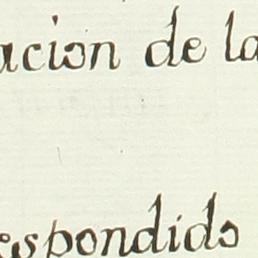 acion de la
espondido